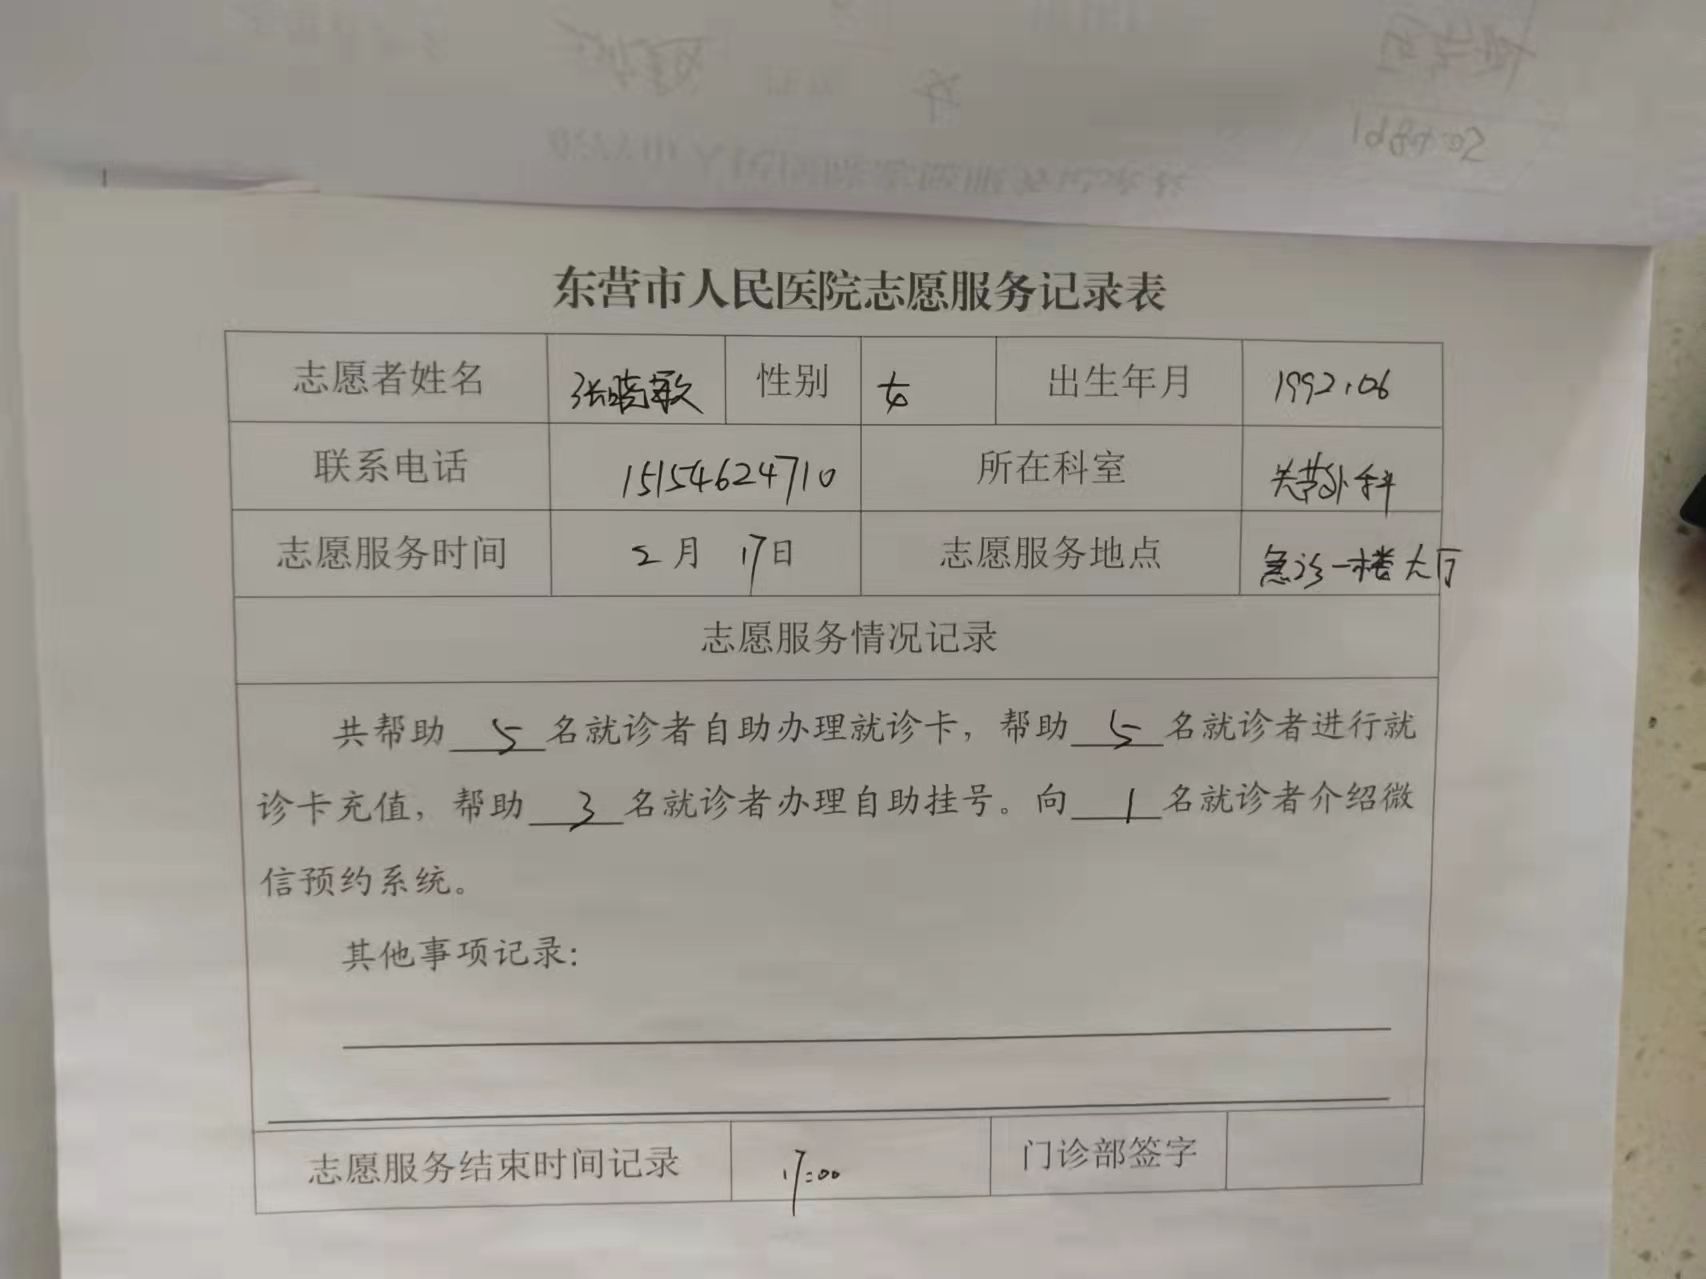 东营市人民医院志愿服务记录表
志愿者姓名 张晓敏 性别 女 出生年月 1992.06
联系电话 15154624710 所在科室 关节外科
志愿服务时间 2月 17日 志愿服务地点 急诊一楼大厅
志愿服务情况记录
共帮助 5 名就诊者自助办理就诊卡，帮助 5 名就诊者进行就
诊卡充值，帮助 3 名就诊者办理自助挂号。向 1 名就诊者介绍微
信预约系统。
其他事项记录：
志愿服务结束时间记录 17:00 门诊部签字